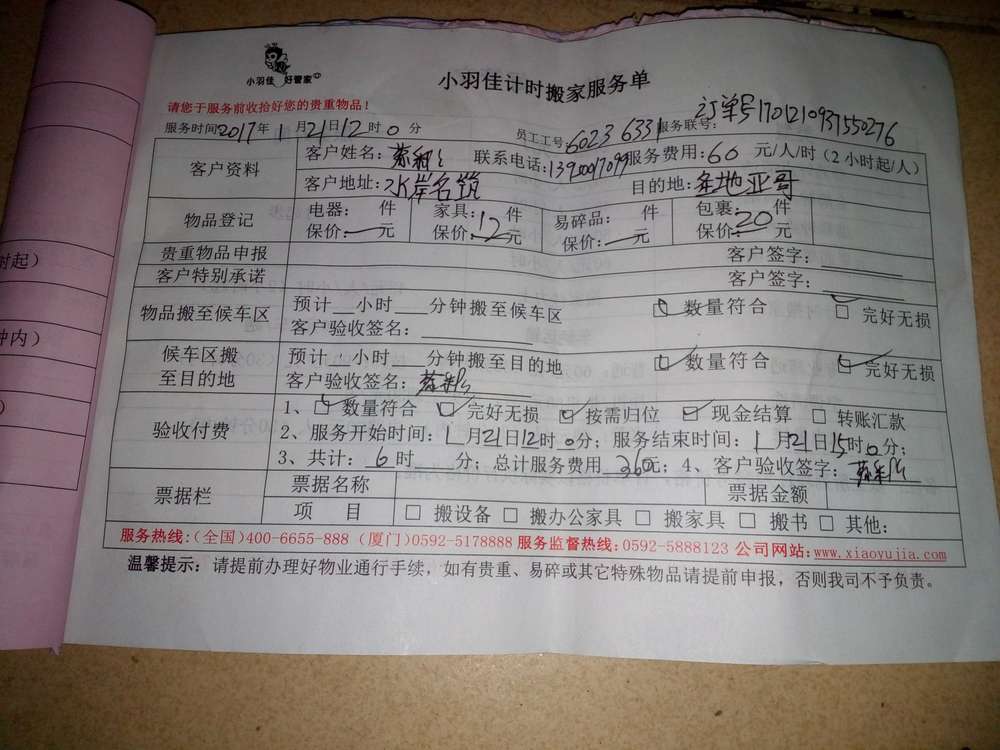 小羽佳 好管家
小羽佳计时搬家服务单
请您于服务前收拾好您的贵重物品！
订单号1701210937550276
服务时间2017年1月21日12时0分 员工工号：6023 6331 服务联号：
客户资料 客户姓名：苏 联系电话： 服务费用：60 元/人/时（2小时起/人）
客户地址：水岸名筑 目的地：圣地亚哥
物品登记 电器： 件 家具： 件 易碎品： 件 包裹： 件
保价：一元 保价：12元 保价：一元 保价：20元
贵重物品申报 客户签字：
客户特别承诺 客户签字：
物品搬至候车区 预计__小时___分钟搬至候车区 ☑ 数量符合 □ 完好无损
客户验收签名：
候车区搬至目的地 预计__小时___分钟搬至目的地 ☑ 数量符合 ☑ 完好无损
客户验收签名：苏
验收付费 1、☑ 数量符合 ☑ 完好无损 ☑ 按需归位 ☑ 现金结算 □ 转账汇款
2、服务开始时间：1月21日12时0分；服务结束时间：1月21日15时0分；
3、共计：6时___分；总计服务费用 360元；4、客户验收签字：苏
票据栏 票据名称 票据金额
项 目 □ 搬设备 □ 搬办公家具 □ 搬家具 □ 搬书 □ 其他：
服务热线：（全国）400-6655-888（厦门）0592-5178888 服务监督热线：0592-5888123 公司网站：www.xiaoyujia.com
温馨提示：请提前办理好物业通行手续，如有贵重、易碎或其它特殊物品请提前申报，否则我司不予负责。
时起）
钟内）